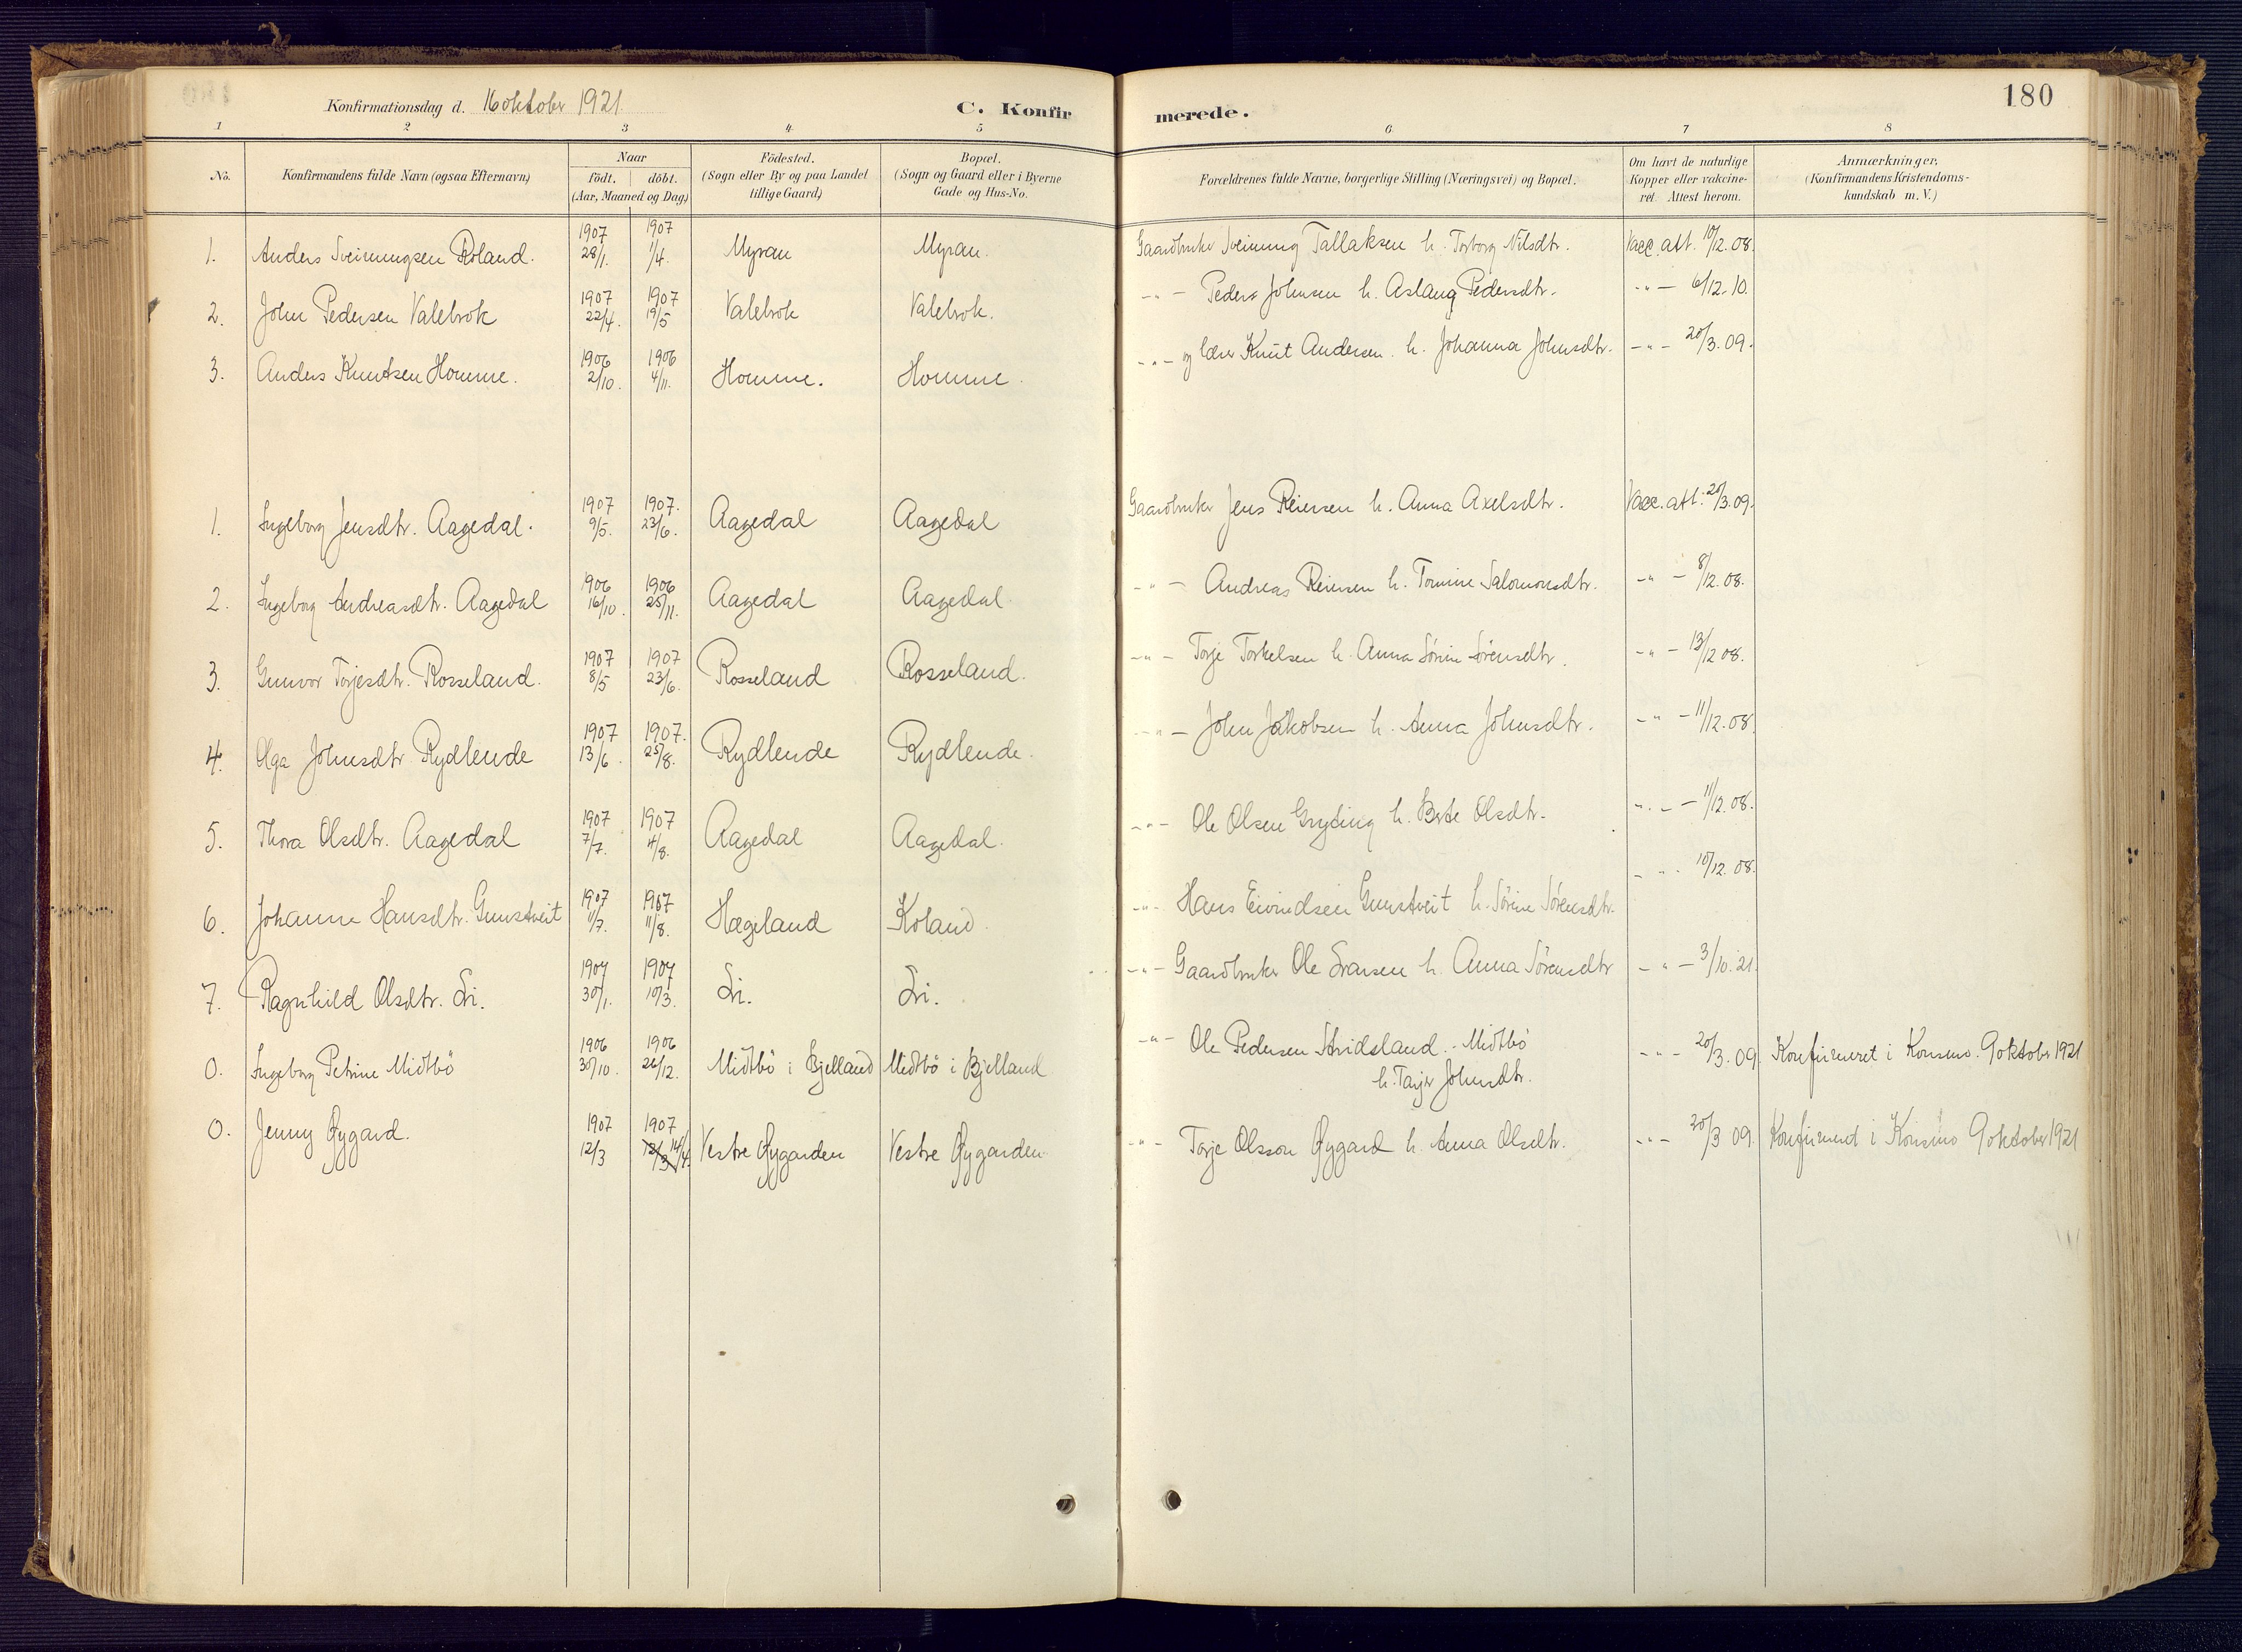 180
Konfirmationsdag d. 16 oktober 1921.
C. Konfirmerede.
1 2 3 4 5 6 7 8
No.
Konfirmandens fulde Navn (ogsaa Efternavn)
Naar
födt. döbt.
(Aar, Maaned og Dag.)
Födested.
(Sogn eller By og paa Landet
tillige Gaard.)
Bopæl.
(Sogn og Gaard eller i Byerne
Gade og Hus-No.
Forældrenes fulde Navne, borgerlige Stilling (Næringsvei) og Bopæl.
Om havt de naturlige
Kopper eller vakcine-
ret. Attest herom.
Anmærkninger.
(Konfirmandens Kristendoms-
kundskab m. V.)
1. Anders Sveinungsen Röland. 1907 28/1. 1907 1/4. Myran Myran. Gaardbruker Sveinung Tallaksen h. Torborg Nilsdtr. Vacc. att. 10/12.08.
2. John Pedersen Valebrok 1907 22/4. 1907 19/5 Valebrok Valebrok. -"- Peder Johnsen h. Aslaug Pedersdtr. -"- 6/12.10.
3. Anders Knutsen Homme. 1906 2/10. 1906 4/11. Homme. Homme. -"- og lærer Knut Andersen. h. Johanna Johnsdtr. -"- 20/3.09.
1. Ingeborg Jensdtr. Aagedal. 1907 9/5. 1907. 23/6. Aagedal Aagedal Gaardbruker Jens Reiersen h. Anna Axelsdtr. Vacc. att. 20/3.09.
2. Ingeborg Andreasdtr. Aagedal 1906 16/10. 1906 25/11. Aagedal Aagedal. -"- Andreas Reiersen h. Tomine Salomonsdtr. -"- 8/12.08.
3. Gunvor Torjesdtr. Rosseland. 1907 8/5 1907 23/6. Rosseland Rosseland. -"- Torje Torkelsen h. Anna Sörine Sörensdtr. -"- 13/12 08.
4. Olga Johnsdtr Rydlende 1907 13/6. 1907. 25/8. Rydlende Rydlende. -"- John Jakobsen h. Anna Johnsdtr. -"- 11/12.08.
5. Thora Olsdtr. Aagedal 1907 7/7. 1907 4/8. Aagedal Aagedal. -"- Ole Olsen Gryting h. Berte Olsdtr. -"- 11/12.08.
6. Johanne Hansdtr. Gunstveit 1907 11/7. 1907 11/8. Hægeland Koland. -"- Hans Eivindsen Gunstveit h. Sörine Sörensdtr. -"- 10/12.08.
7. Ragnhild Olsdtr. Sri. 1907 30/1. 1907 10/3. Sri. Sri. -"- Gaardbruker Ole h. Anna Sörensdtr -"- 3/10.21.
0. Ingeborg Petrine Midtbö 1906 30/10. 1906 26/12. Midtbö i Bjelland Midtbö i Bjelland. -"- Ole Pedersen Stridsland - Midtbö -"- 20/3.09. Konfirmeret i Konsmo. 9 oktober 1921
h. Tarjer Johnsdtr.
0. Jenny Øygard. 1907 12/3 1907 12/3 14/4. Vestre Øygarden Vestre Øygarden -"- Torje Olsson Øygard h. Anna Olsdtr. -"- 20/3 09. Konfirmeret i Konsmo 9 oktober 1921